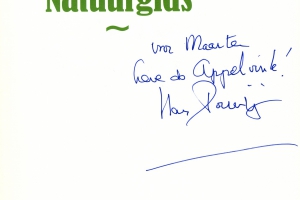 Natuurgids
voor Maarten
de Appelvink!
Hans